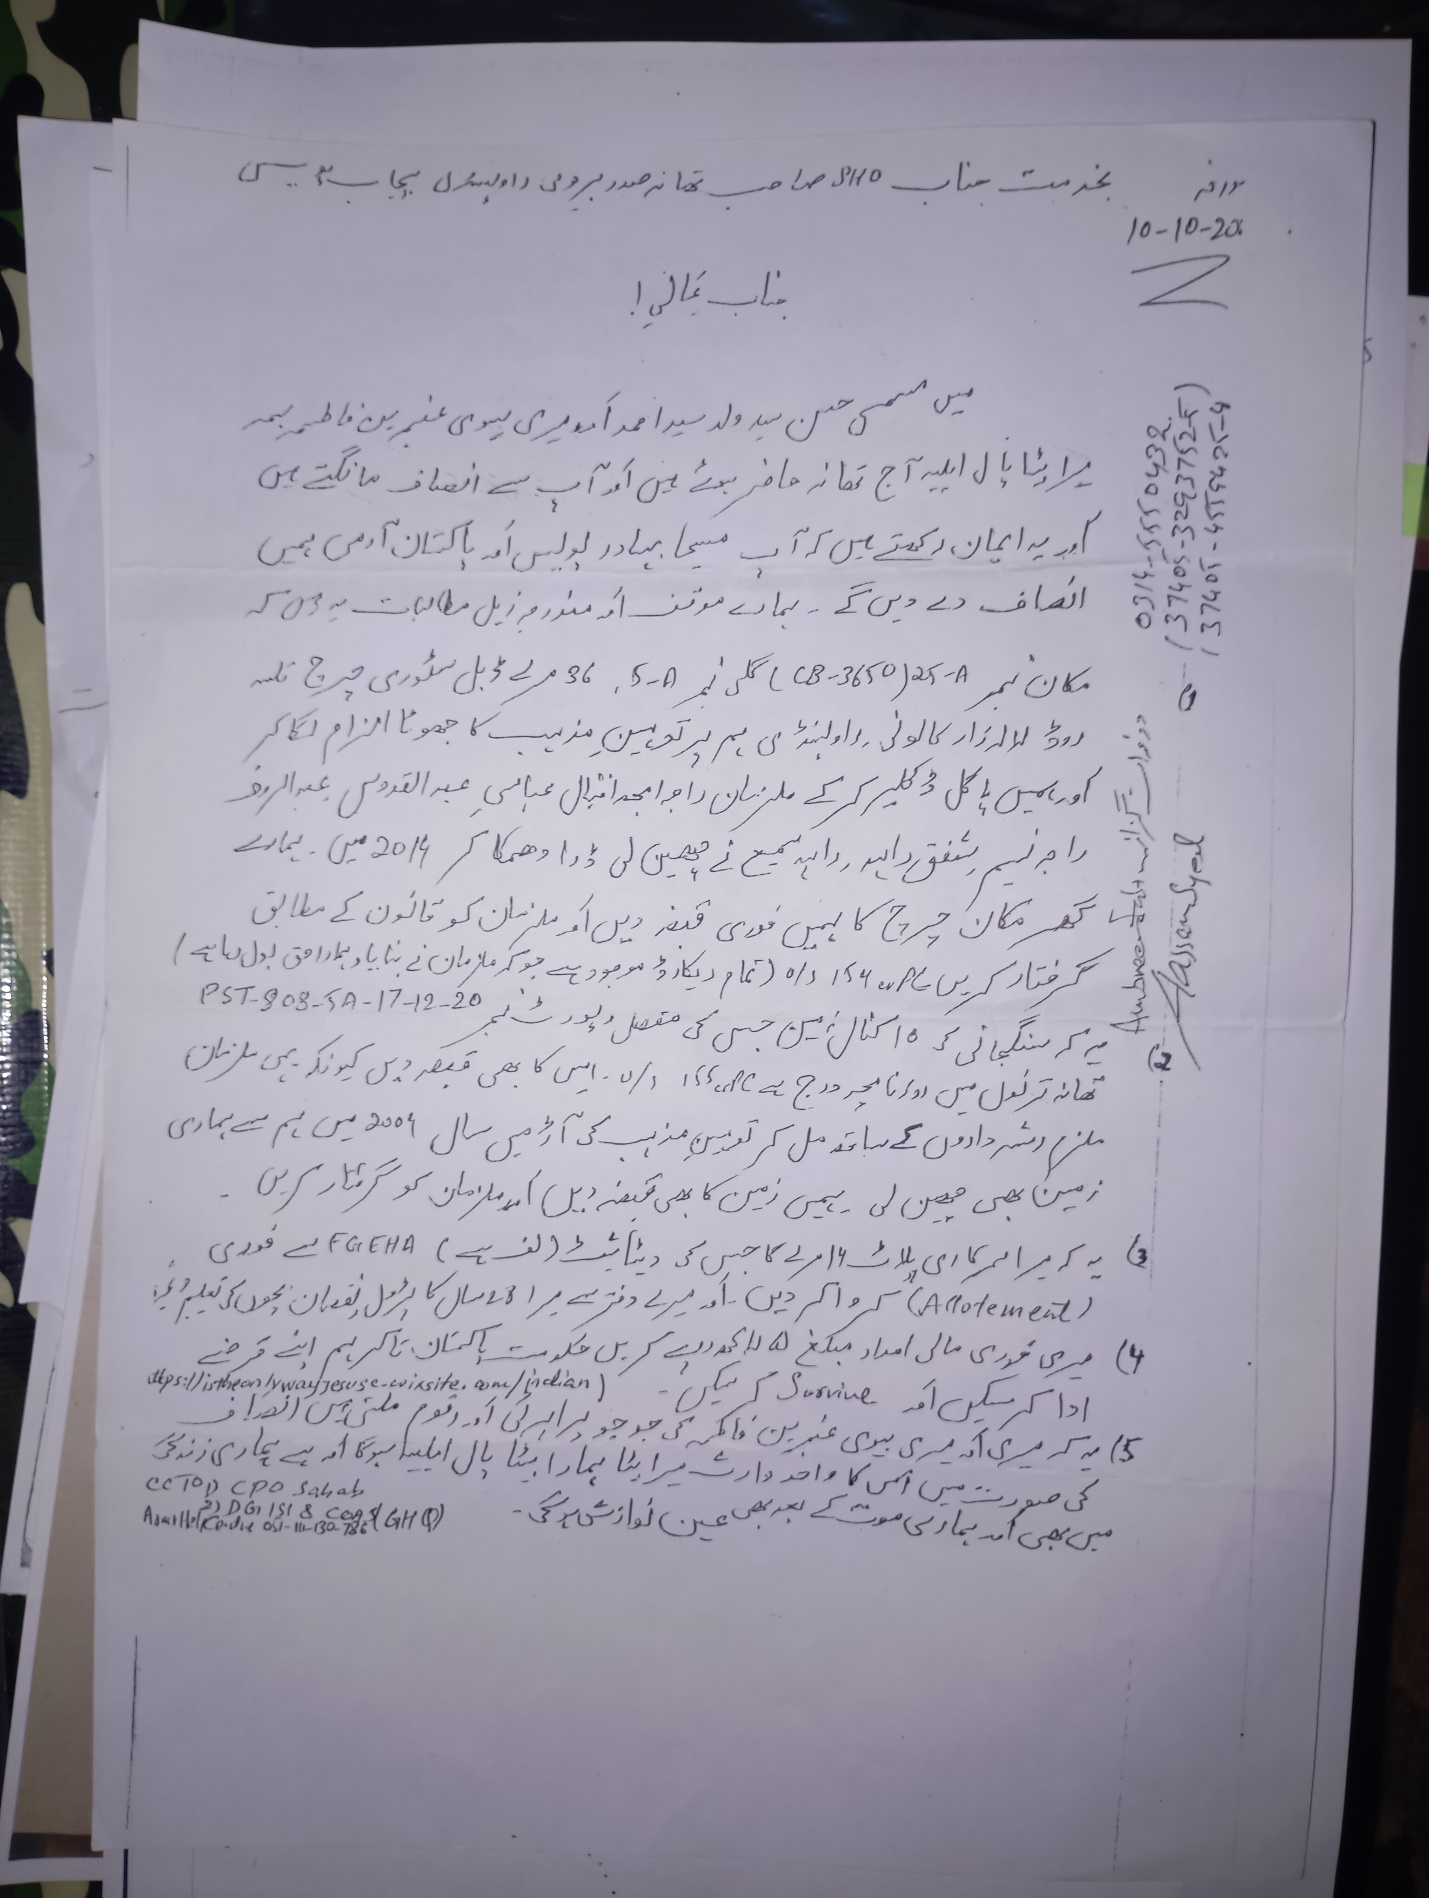 مورخہ
10-10-20
بخدمت جناب SHO صاحب تھانہ صدر بیرونی راولپنڈی پنجاب پولیس
جناب عالی!
میں مسمی حسن سید ولد سید احمد اور میری بیوی عنبرین فاطمہ بمعہ
میرا بیٹا پال ایلیہ آج تھانہ حاضر ہوئے ہیں اور آپ سے انصاف مانگتے ہیں
اور یہ ایمان رکھتے ہیں کہ آپ مسیحا بہادر پولیس اور پاکستان آرمی ہمیں
انصاف دے دیں گے۔ ہمارے موقف اور مندرجہ ذیل مطالبات یہ ہیں کہ
1) مکان نمبر 25-A (CB-3650) گلی نمبر 5-A، 36 مرلے ڈبل سٹوری چرچ
روڈ لالہ زار کالونی راولپنڈی ہم پر توہینِ مذہب کا جھوٹا الزام لگا کر
اور ہمیں پاگل ڈکلیر کر کے ملزمان راجہ امجد اقبال عباسی عبدالقدوس عبدالروف
راجہ نسیم شفقی راہبہ، راہبہ سمیع نے چھین لی ڈرا دھمکا کر 2014 میں۔ ہمارے
گھر مکان چرچ کا ہمیں فوری قبضہ دیں اور ملزمان کو قانون کے مطابق
گرفتار کریں u/s 154 (تمام ریکارڈ موجود ہے جو کہ ملزمان نے بنایا ہمارا حق بول رہا ہے)
2) یہ کہ سنگجانی کی 10 کنال زمین جس کی مفصل رپورٹ نمبر PST-803-SA-17-12-20
تھانہ ترنول میں روزنامچہ درج ہے u/s 155 ۔ اس کا بھی قبضہ دیں کیونکہ یہی ملزمان
ملزم رشتہ داروں کے ساتھ مل کر توہینِ مذہب کی آڑ میں سال 2009 میں ہم سے ہماری
زمین بھی چھین لی۔ ہمیں زمین کا بھی قبضہ دیں اور ملزمان کو گرفتار کریں۔
3) یہ کہ میرا سرکاری پلاٹ 14 مرلے کا جس کی (لف ہے) FGEHA سے فوری
(Allotement) کروا کر دیں۔ اور میرے دفتر سے میرا سال کا نقصان بچوں کی تعلیم
4) میری فوری مالی امداد مبلغ لاکھ روپے کریں حکومت پاکستان تاکہ ہم اپنے قرضے
ادا کر سکیں اور Survive کر سکیں۔
5) یہ کہ میری اور میری بیوی عنبرین فاطمہ کی جو جو پراپرٹی اور رقوم ملتی ہیں انصاف
کی صورت میں اس کا واحد وارث میرا بیٹا ہمارا بیٹا پال ایلیہ ہوگا اور ہے ہماری زندگی
میں بھی اور ہماری موت کے بعد بھی عین نوازش ہوگی۔
CC TO 1) CPO Sahab
2) DG ISI & COAS (GHQ)
درخواست گزار
Hassan Syed
0314-5550432